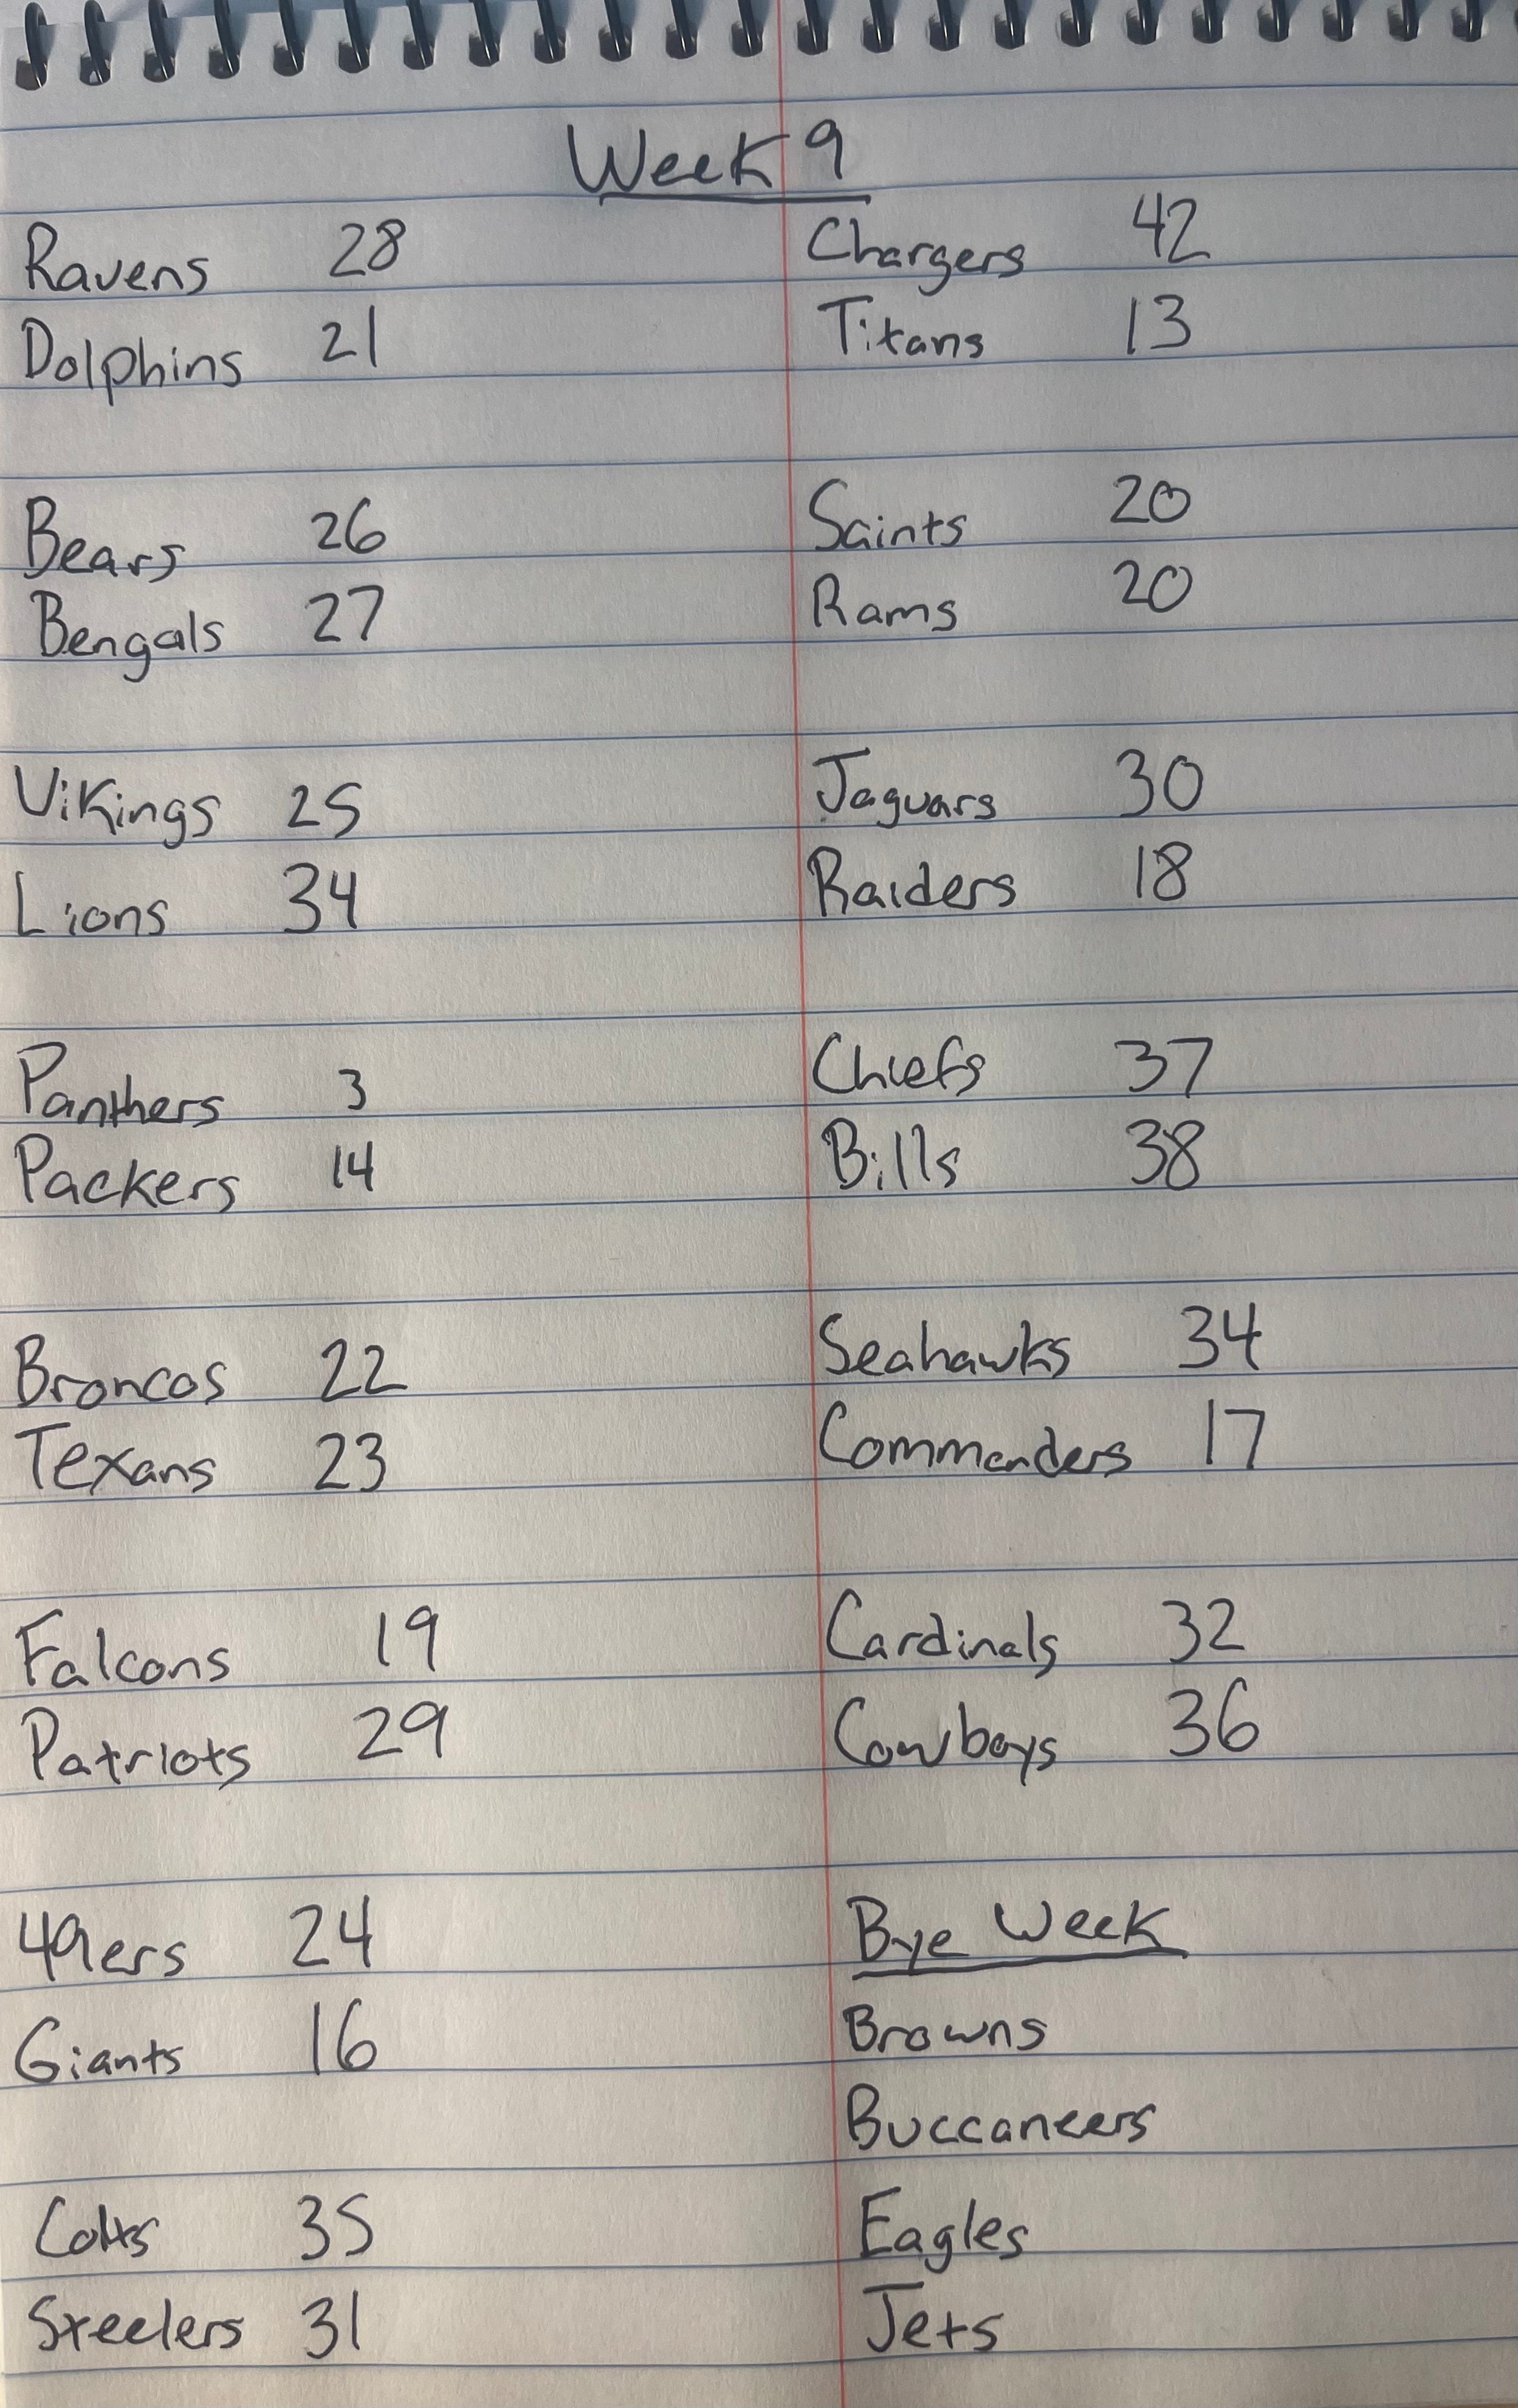 Week 9
Ravens 28
Dolphins 21
Bears 26
Bengals 27
Vikings 25
Lions 34
Panthers 3
Packers 14
Broncos 22
Texans 23
Falcons 19
Patriots 29
49ers 24
Giants 16
Colts 35
Steelers 31
Chargers 42
Titans 13
Saints 20
Rams 20
Jaguars 30
Raiders 18
Chiefs 37
Bills 38
Seahawks 34
Commanders 17
Cardinals 32
Cowboys 36
Bye Week
Browns
Buccaneers
Eagles
Jets